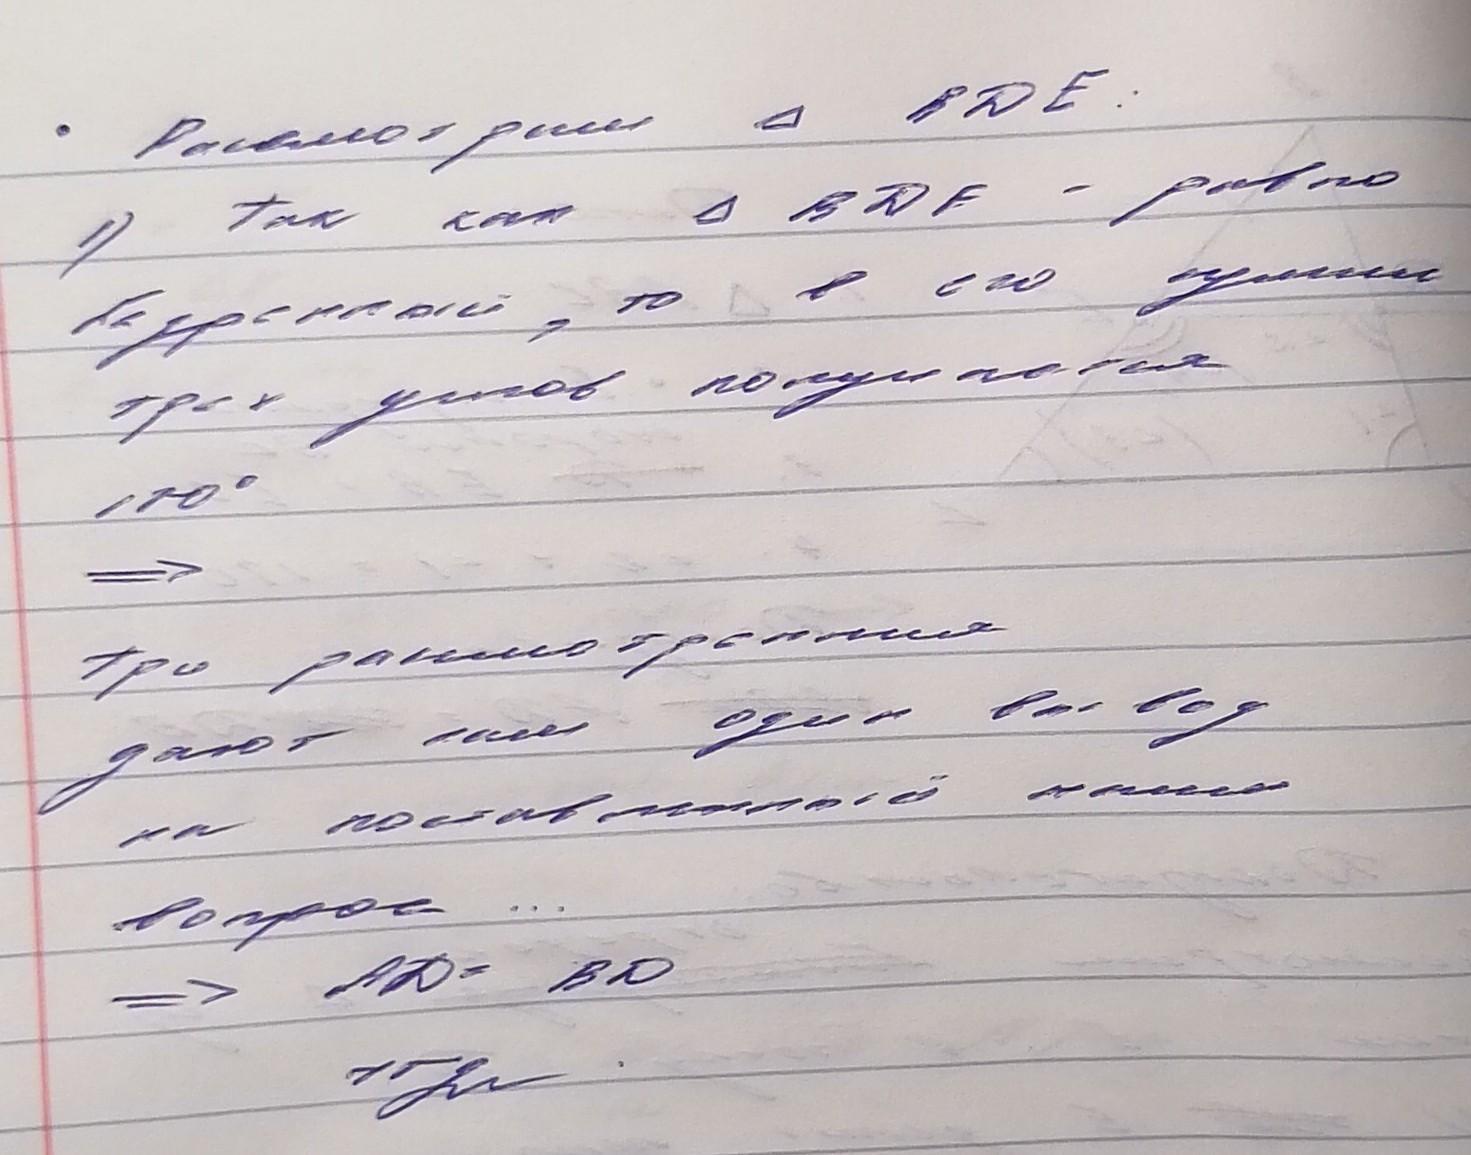 • Рассмотрим △ BDE:
1) Так как △ BDE - равно
бедренный, то в его сумме
трех углов получается
180°
⇒
Три рассмотрения
дают нам один вывод
на поставленный нами
вопрос ...
⇒ AD = BD
чтд